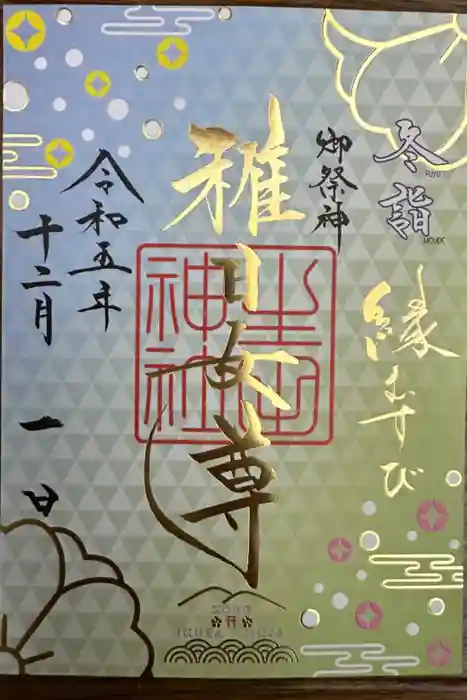 冬詣
FUYU
MOUDE
縁むすび
御祭神
稚日女尊
生田神社
令和五年
十二月 一 日
KOBE
IKUTA JINJA